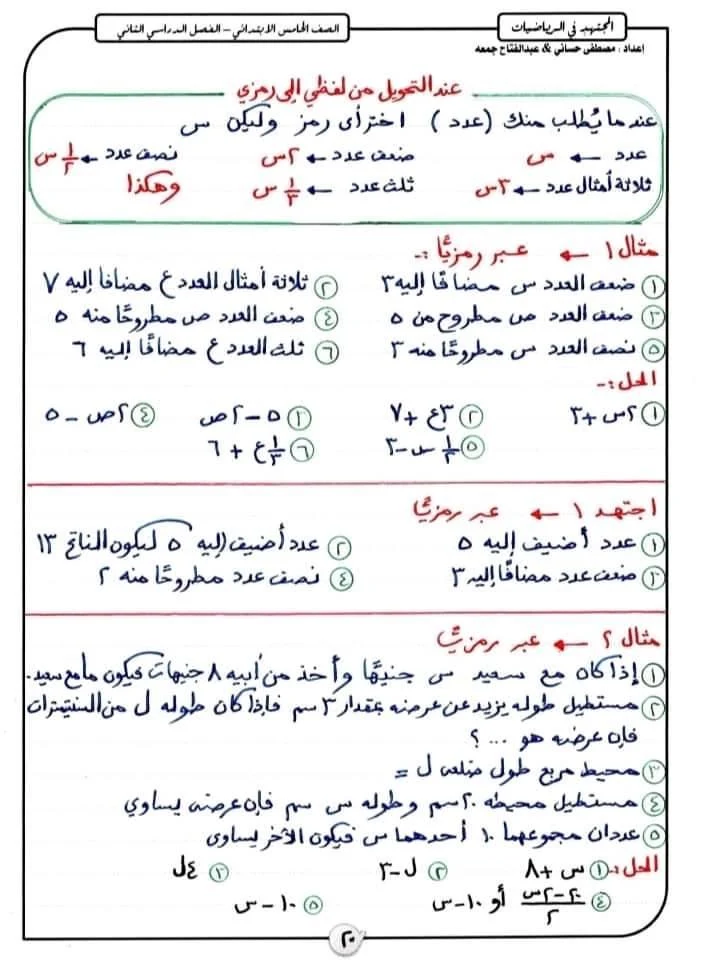 المجتهد في الرياضيات
الصف الخامس الابتدائي – الفصل الدراسي الثاني
إعداد : مصطفى حساني & عبدالفتاح جمعه
عند التحويل من لفظي إلى رمزي
عندما يُطلب منك (عدد) اختر أي رمز وليكن س
عدد ← س ضعف عدد ← ٢س نصف عدد ← ١/٢ س
ثلاثة أمثال عدد ← ٣س ثلث عدد ← ١/٣ س وهكذا
مثال ١ ← عبر رمزيًّا :-
① ضعف العدد س مضافًا إليه ٣ ② ثلاثة أمثال العدد ع مضافا إليه ٧
③ ضعف العدد ص مطروح من ٥ ④ ضعف العدد ص مطروحًا منه ٥
⑤ نصف العدد س مطروحًا منه ٣ ⑥ ثلث العدد ع مضافًا إليه ٦
الحل :-
① ٢س + ٣ ② ٣ع + ٧ ③ ٥ - ٢ص ④ ٢ص - ٥
⑤ ١/٢ س - ٣ ⑥ ١/٣ ع + ٦
اجتهد ١ ← عبر رمزيًّا
① عدد أضيف إليه ٥ ② عدد أضيف إليه ٥ ليكون الناتج ١٣
③ ضعف عدد مضافًا إليه ٣ ④ نصف عدد مطروحًا منه ٢
مثال ٢ ← عبر رمزيًّا
① إذا كان مع سعيد س جنيهًا وأخذ من أبيه ٨ جنيهات فيكون ما مع سعيد.
② مستطيل طوله يزيد عن عرضه بمقدار ٣ سم فإذا كان طوله ل من السنتيمترات
فإن عرضه هو ... ؟
③ محيط مربع طول ضلعه ل =
④ مستطيل محيطه ٢٠ سم وطوله س سم فإن عرضه يساوي
⑤ عددان مجموعهما ١٠ أحدهما س فيكون الآخر يساوى
الحل :- ① س + ٨ ② ل - ٣ ③ ٤ل
④ ٢٠ - ٢س / ٢ أو ١٠ - س ⑤ ١٠ - س
٢٠